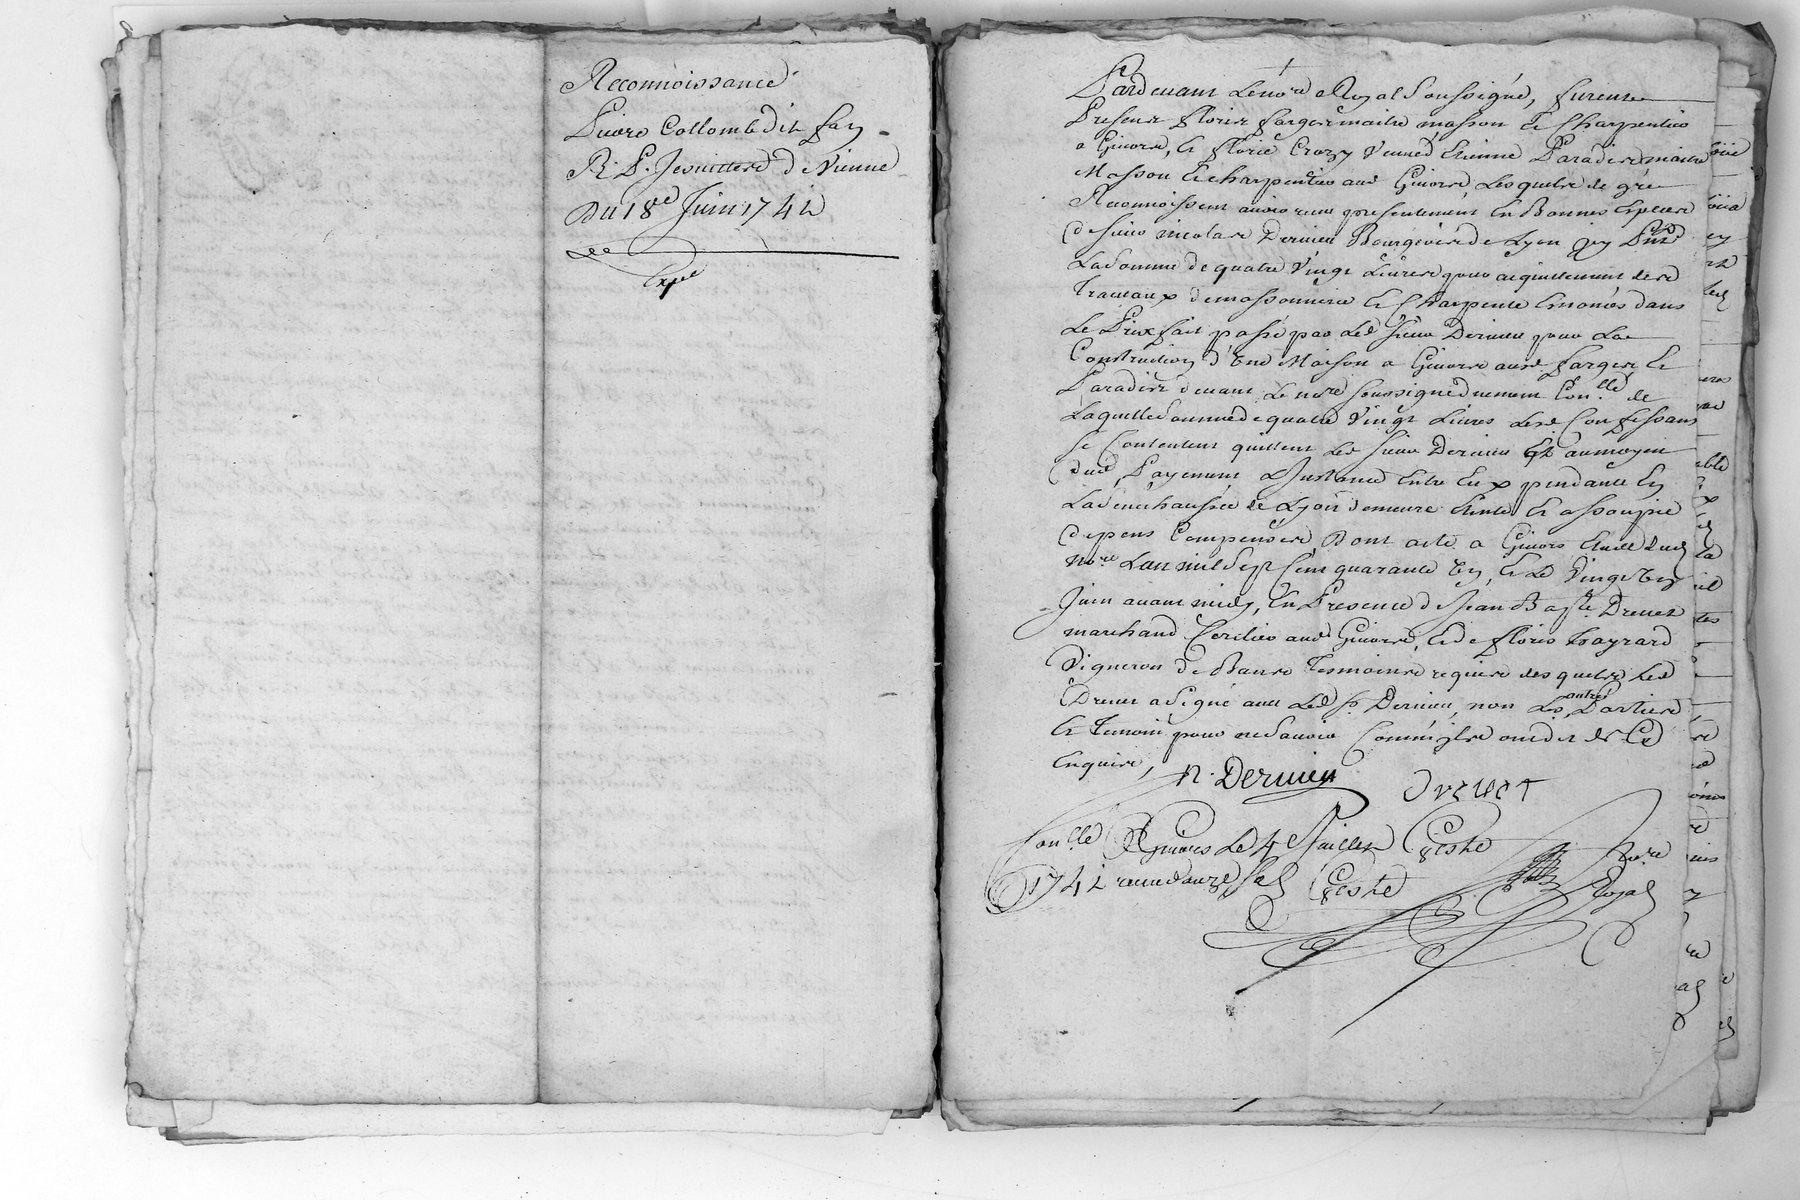 Reconnoissance
Pierre Collomb dit fay
R. P. Jesuittes de Vienne
Du 18e Juin 1741
Expé
Pardevant le nore Royal soussigné, furent
Present floris farge maitre masson et charpentier
a Givors, et floris Crozy Etienne Paradis maitre
Masson et charpentier aud Givors, lesquels de gré
Reconnoissent avoir reçu presentement En Bonnes Especes
de sieur nicolas Dervieu Bourgeois de Lyon icy Pnt
La somme de quatre vingt Livres pour acquittement des
Travaux de massonnerie et Charpente Enoncés dans
Le Prix fait passé par led sieur Dervieu pour La
Construction d'Une Maison a Givors aud farge et
Paradis devant Le nore soussigné duement Con.llé de
Laquelle somme de quatre vingt Livres Lesd Confessans
se Contentent quittent Led sieur Dervieu Et au moyen
dud Payement L'Instance Entre Eux pendante En
La senechaussée de Lyon demeure Eteinte et assoupie
depens Compensés Dont acte a Givors Etude dud
nore L'an mil sept Cent quarante Un, et Le vingt Un
Juin avant midy, En Presence de Jean Bapte Drevet
marchand aud Givors, et de floris
Vigneron de Bans Temoins requis desquels Led
Drevet a signé avec Led sr Dervieu, non Les autres Parties
et Temoin pour ne sçavoir Comme ils ont dit de Ce
Enquis,
n. Dervieu Drevet
Con.llé A Givors Le 4 Juillet
1741 reçu douze sols
nore
Royal